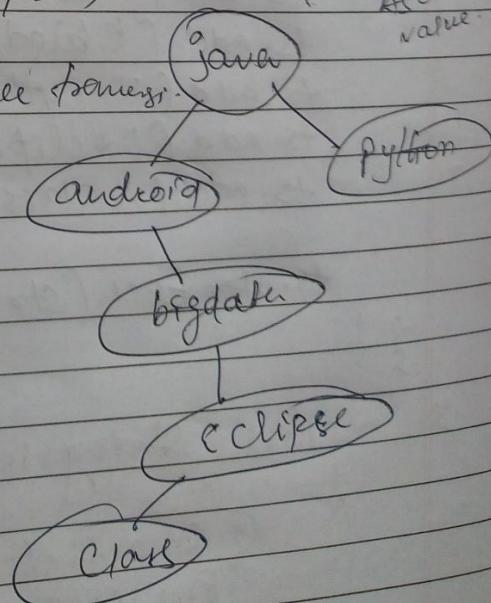 value.
java
python
android
bigdata
eclipse
class